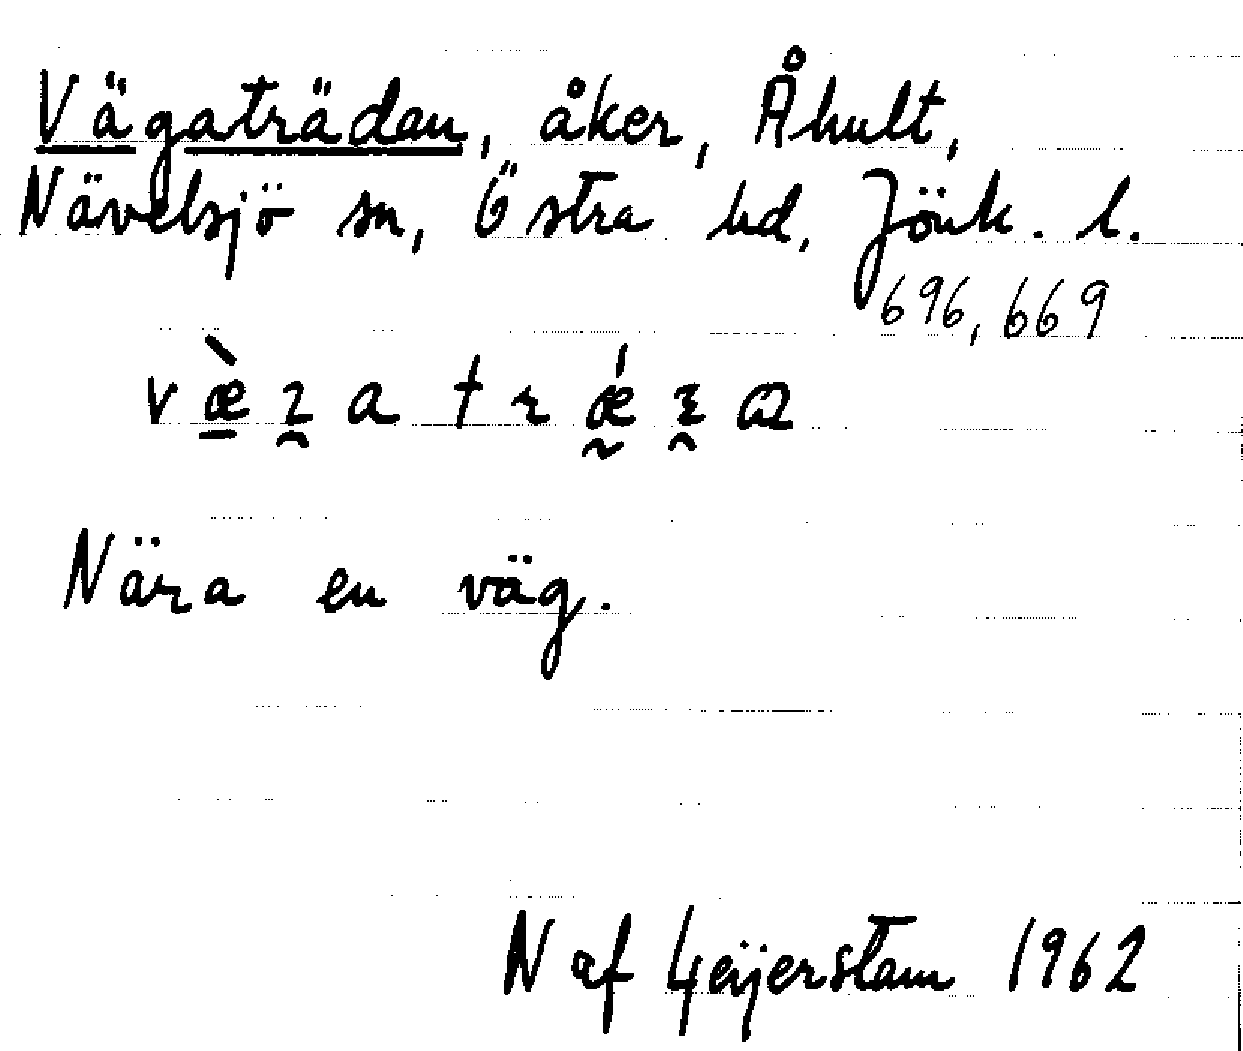 Vägaträdan, åker, Åhult,
Nävelsjö sn, Östra hd, Jönk. l.
696, 669
Nära en väg.
N af Geijerstam 1962